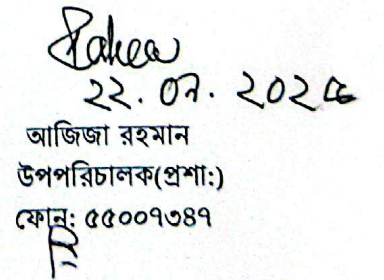 ২২.০৭.২০২৫
আজিজা রহমান
উপপরিচালক(প্রশা:)
ফোন: ৫৫০০৭৩৪৭